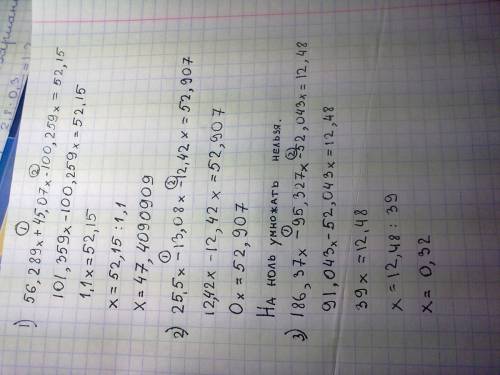 1) 56,289x + 45,07x - 100,259x = 52,15
101,359x - 100,259x = 52,15
1,1x = 52,15
x = 52,15 : 1,1
x = 47,4090909
2) 25,5x - 13,08x - 12,42x = 52,907
12,42x - 12,42x = 52,907
0x = 52,907
На ноль умножать нельзя.
3) 186,37x - 95,327x - 52,043x = 12,48
91,043x - 52,043x = 12,48
39x = 12,48
x = 12,48 : 39
x = 0,32